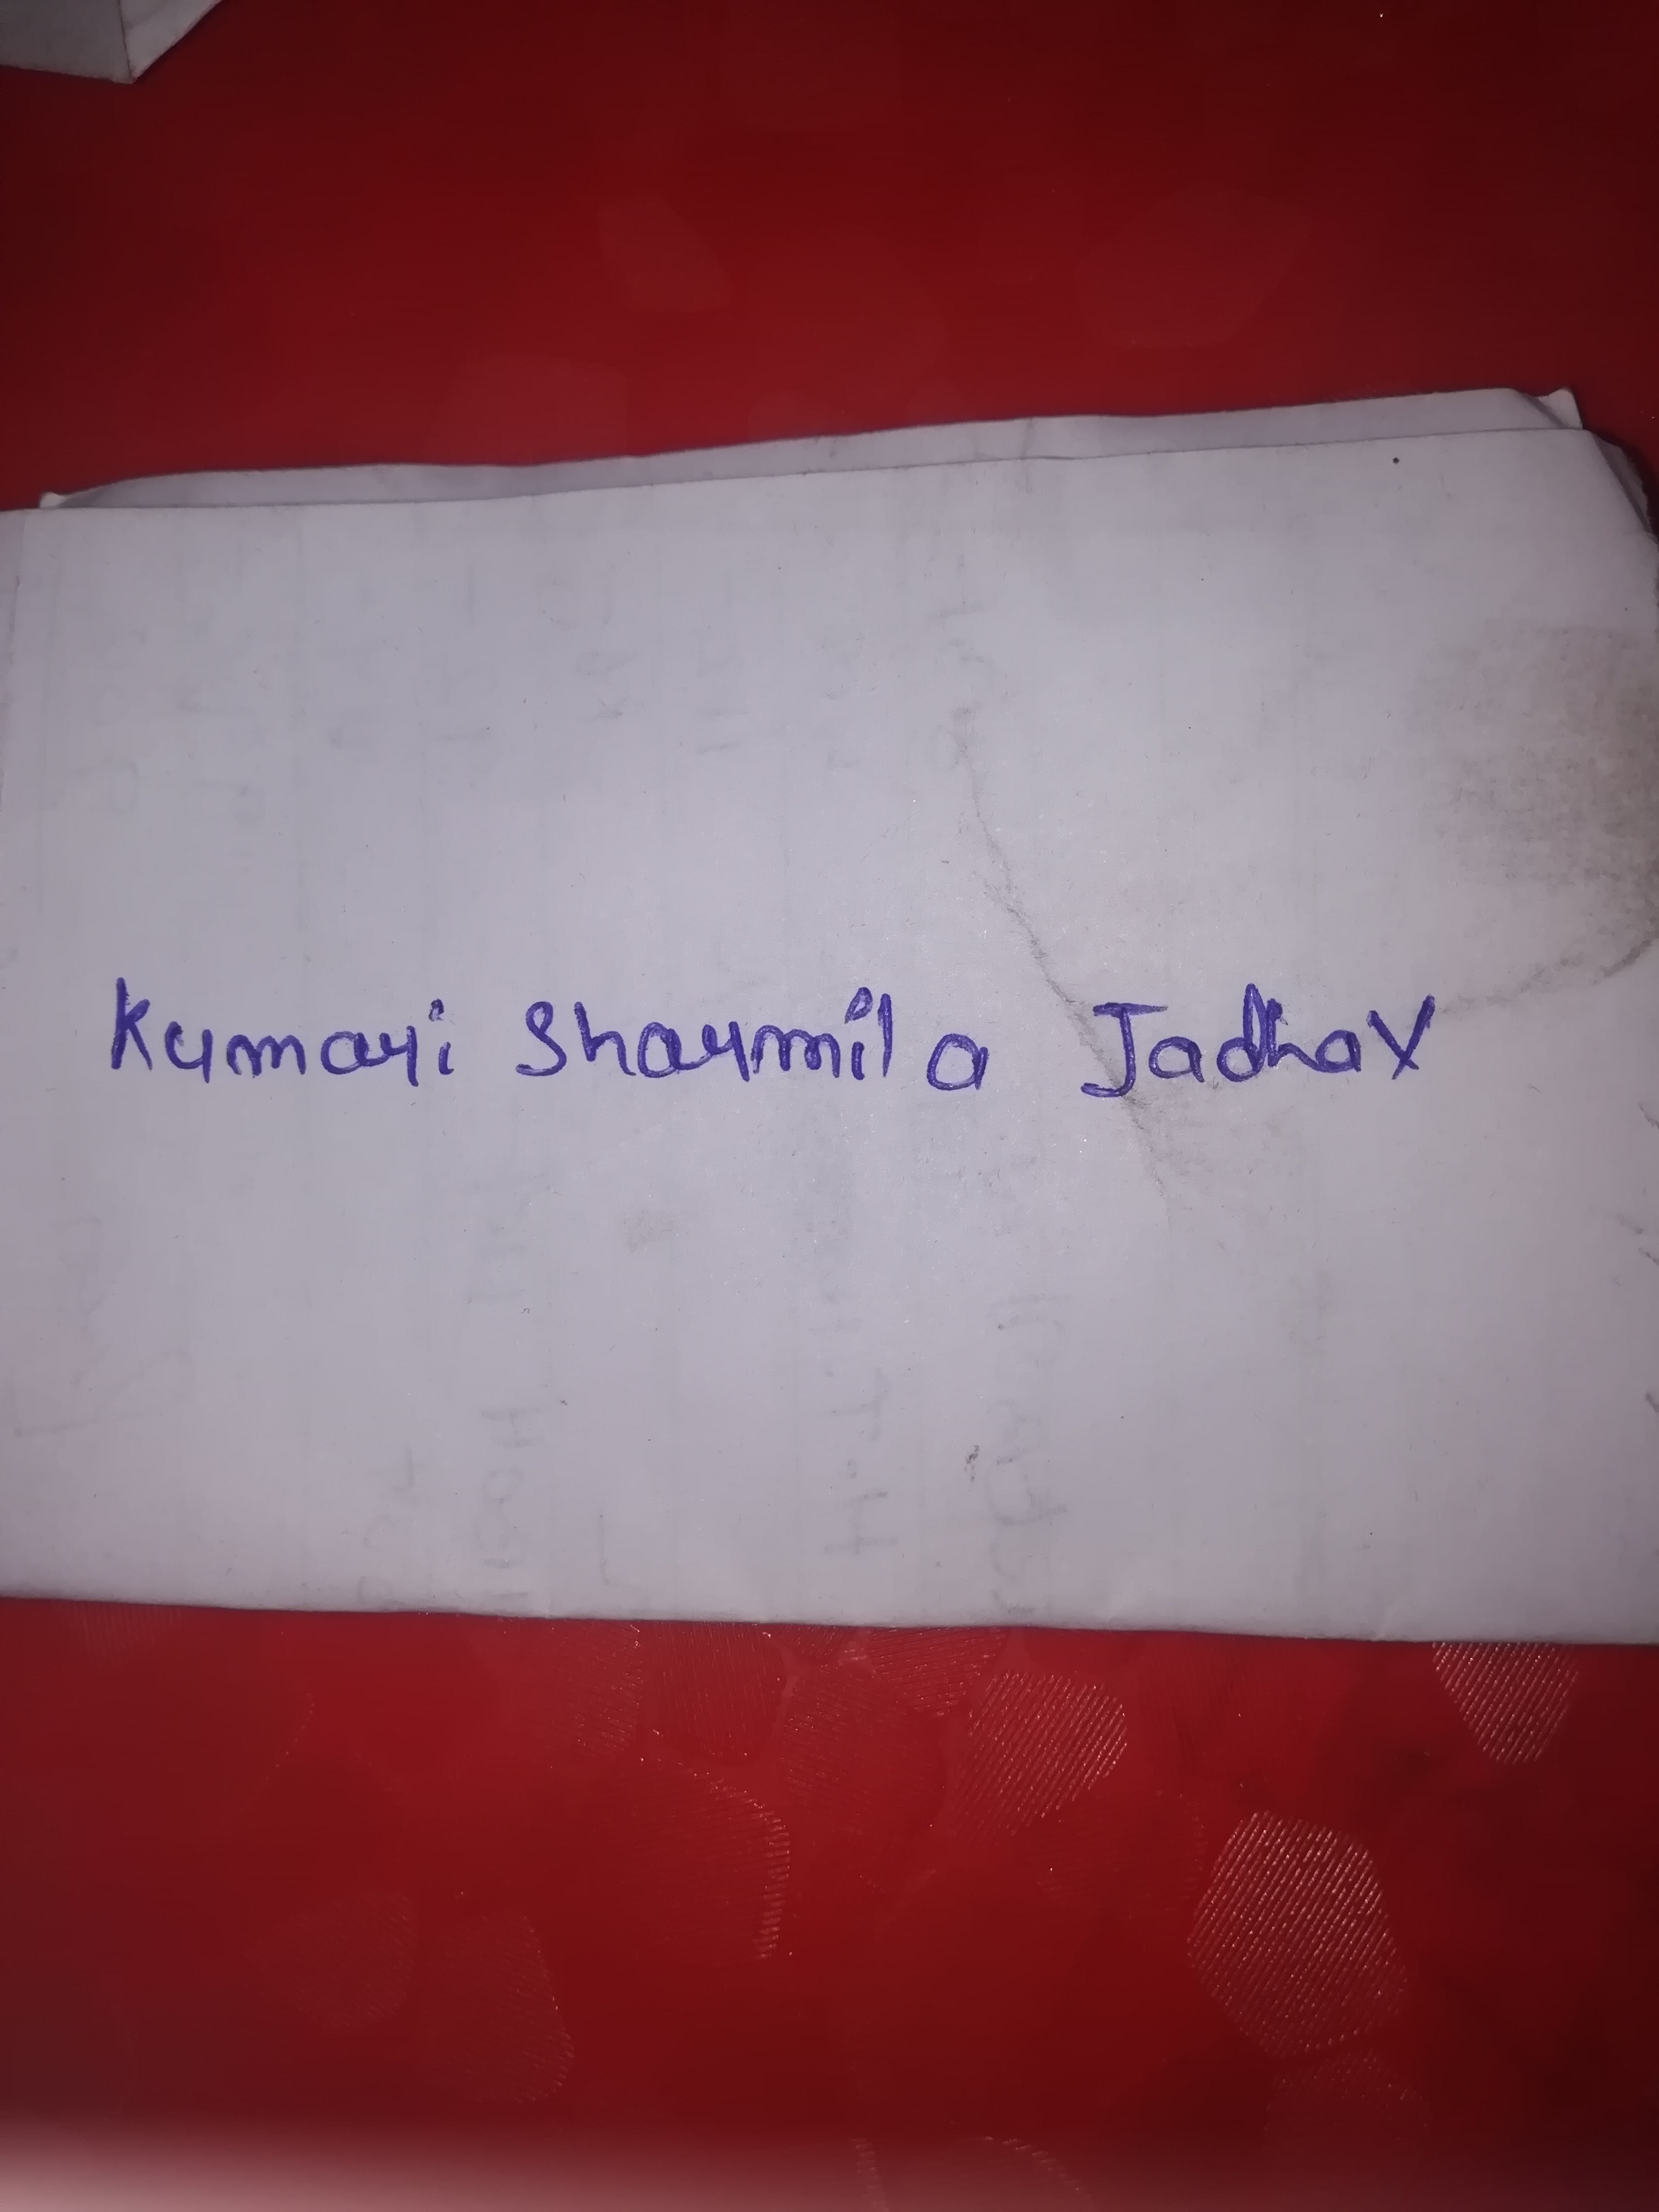 Kumari Sharmila Jadhav